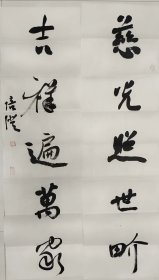 慈光照世界
吉祥遍萬家